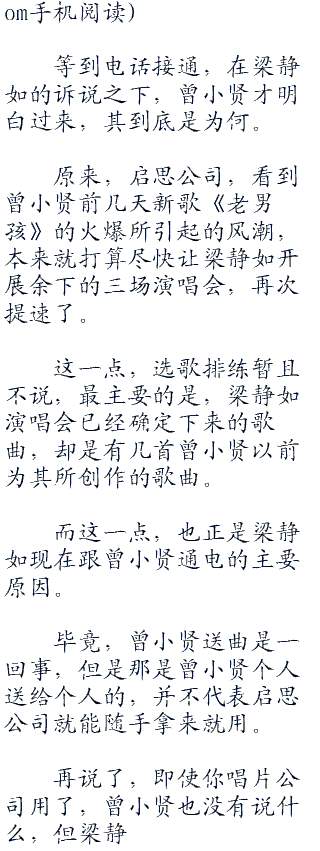 om手机阅读)
等到电话接通，在梁静
如的诉说之下，曾小贤才明
白过来，其到底是为何。
原来，启思公司，看到
曾小贤前几天新歌《老男
孩》的火爆所引起的风潮，
本来就打算尽快让梁静如开
展余下的三场演唱会，再次
提速了。
这一点，选歌排练暂且
不说，最主要的是，梁静如
演唱会已经确定下来的歌
曲，却是有几首曾小贤以前
为其所创作的歌曲。
而这一点，也正是梁静
如现在跟曾小贤通电的主要
原因。
毕竟，曾小贤送曲是一
回事，但是那是曾小贤个人
送给个人的，并不代表启思
公司就能随手拿来就用。
再说了，即使你唱片公
司用了，曾小贤也没有说什
么，但梁静